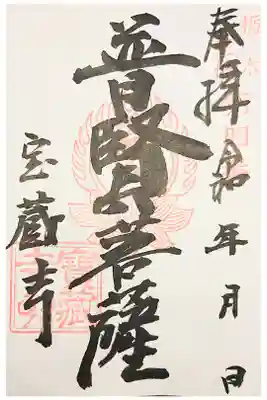 奉拝 令和 年 月 日
普賢菩薩
宝蔵寺